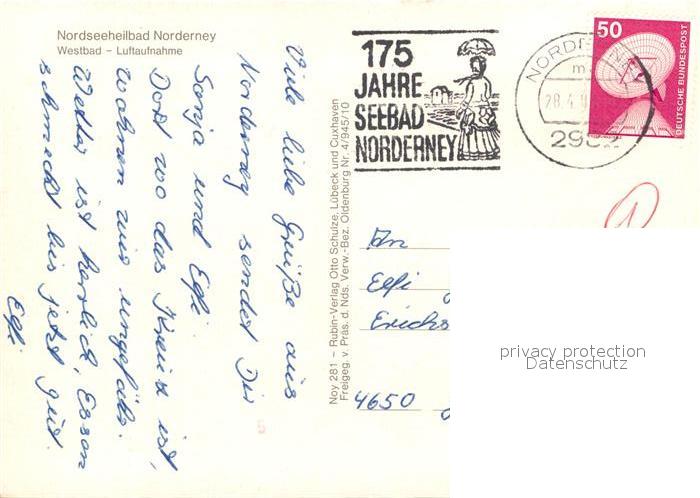 Nordseeheilbad Norderney
Westbad – Luftaufnahme
Viele liebe Grüße aus
Norderney sendet Dir
Sonja und Elfi.
Dort wo das Kreuz ist,
wohnen wir ungefähr.
Wetter ist herrlich, Essen
schmeckt bis jetzt gut.
Elfi
Noy 281 – Rubin-Verlag Otto Schulze, Lübeck und Cuxhaven
Freigeg. v. Präs. d. Nds. Verw.-Bez. Oldenburg Nr. 4/945/10
175
JAHRE
SEEBAD
NORDERNEY
28.4.
2982
50
DEUTSCHE BUNDESPOST
An
Elfi
Erichs
4650
privacy protection
Datenschutz
5